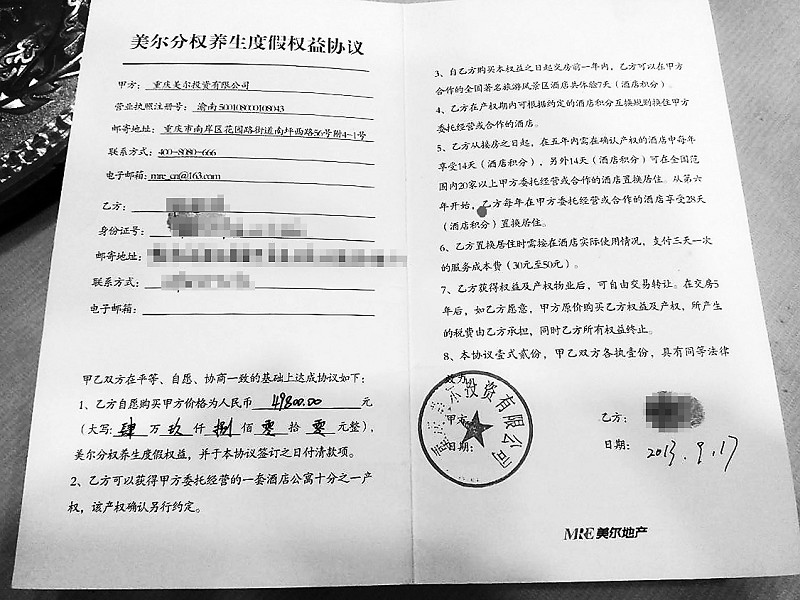 美尔分权养生度假权益协议
甲方: 重庆美尔投资有限公司
营业执照注册号: 渝南500108000108043
邮寄地址: 重庆市南岸区花园路街道南坪西路56号附4-1号
联系方式: 400-8080-666
电子邮箱: mre_cn@163.com
乙方:
身份证号:
邮寄地址:
联系方式:
电子邮箱:
甲乙双方在平等、自愿、协商一致的基础上达成协议如下:
1、乙方自愿购买甲方价格为人民币 49800.00 元
(大写: 肆 万 玖 仟 捌 佰 零 拾 零 元整),
美尔分权养生度假权益,并于本协议签订之日付清款项。
2、乙方可以获得甲方委托经营的一套酒店公寓十分之一产
权,该产权确认另行约定。
3、自乙方购买本权益之日起交房前一年内,乙方可以在甲方
合作的全国著名旅游风景区酒店共体验7天(酒店积分)。
4、乙方在产权期内可根据约定的酒店积分互换规则换住甲方
委托经营或合作的酒店。
5、乙方从接房之日起,在五年内需在确认产权的酒店中每年
享受14天(酒店积分),另外14天(酒店积分)可在全国范
围内20家以上甲方委托经营或合作的酒店置换居住。从第六
年开始,乙方每年在甲方委托经营或合作的酒店享受28天
(酒店积分)置换居住。
6、乙方置换居住时需按在酒店实际使用情况,支付三天一次
的服务成本费(30元至50元)。
7、乙方获得权益及产权物业后,可自由交易转让。在交房5
年后,如乙方愿意,甲方原价购买乙方权益及产权,所产生
的税费由乙方承担,同时乙方所有权益终止。
8、本协议壹式贰份,甲乙双方各执壹份,具有同等法律
效力。
甲方:
日期:
投资有限公司
乙方:
日期: 2013.9.17
MRE美尔地产